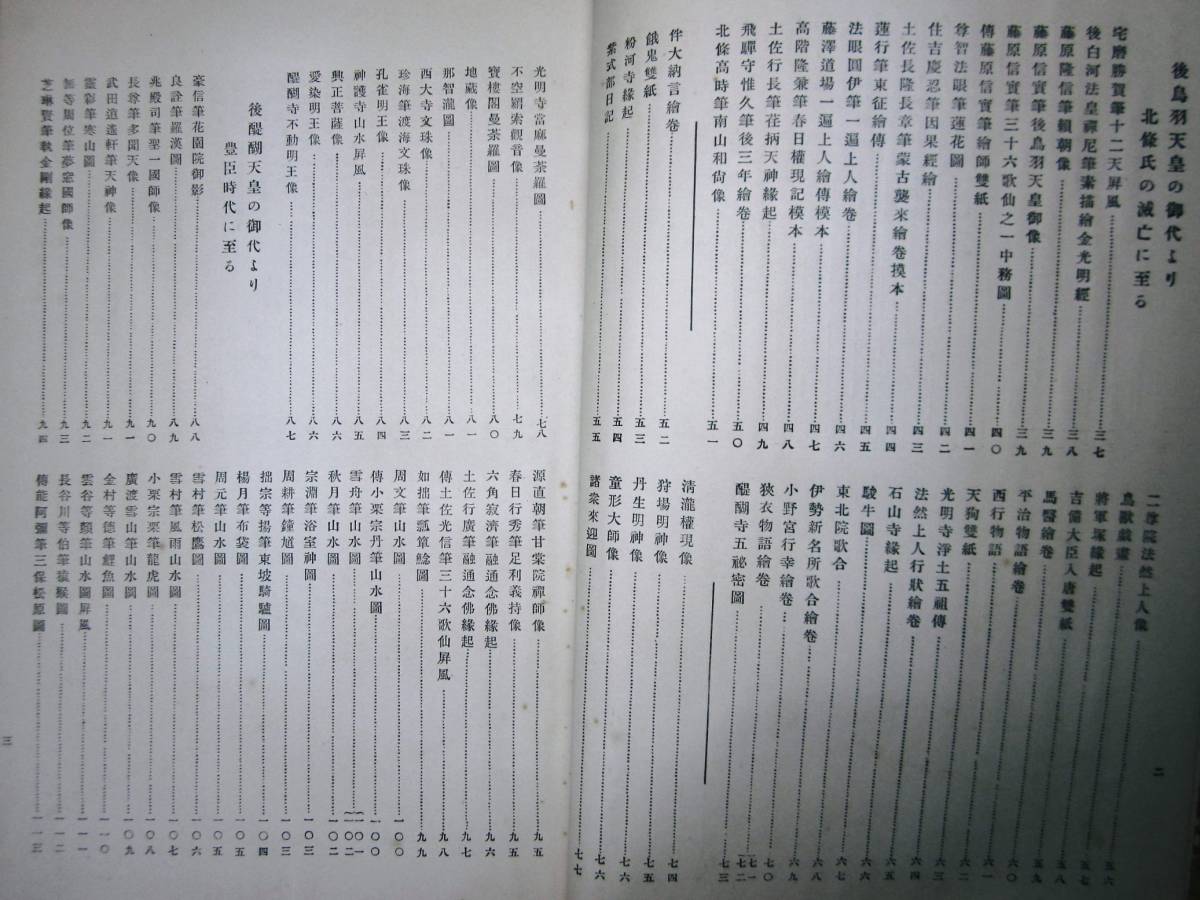 後鳥羽天皇の御代より
北條氏の滅亡に至る
宅磨勝賀筆十二天屏風……三七
後白河法皇禪尼筆素描繪金光明經
藤原隆信筆頼朝像……三八
藤原信實筆後鳥羽天皇御像……三九
藤原信實筆三十六歌仙之一中務圖……三九
傳藤原信實筆繪師雙紙……四〇
尊智法眼筆蓮花圖……四一
住吉慶忍筆因果經繪……四二
土佐長隆長章筆蒙古襲來繪卷摸本……四三
蓮行筆東征繪傳……四四
法眼圓伊筆一遍上人繪卷……四五
藤澤道場一遍上人繪傳模本……四六
高階隆兼筆春日權現記模本……四七
土佐行長筆荏柄天神緣起……四八
飛驒守惟久筆後三年繪卷……四九
北條高時筆南山和尙像……五〇
五一
伴大納言繪卷……五二
餓鬼雙紙……五三
粉河寺緣起……五四
紫式部日記……五五
二尊院法然上人像……五六
鳥獸戲畫
將軍塚緣起……五七
吉備大臣入唐雙紙……五八
馬醫繪卷……五九
平治物語繪卷……六〇
西行物語……六一
天狗雙紙……六二
光明寺淨土五祖傳……六三
法然上人行狀繪卷……六三
石山寺緣起……六四
駿牛圖……六五
東北院歌合……六七
伊勢新名所歌合繪卷……六八
小野宮行幸繪卷……六九
狹衣物語繪卷……七〇
醍醐寺五祕密圖……七一、七二
七三
清瀧權現像……七四
狩場明神像……七五
丹生明神像……七六
童形大師像……七六
諸衆來迎圖……七七
二
光明寺當麻曼荼羅圖……七八
不空羂索觀音像……七九
寶樓閣曼荼羅圖……八〇
地藏像……八一
那智瀧圖……八一
西大寺文珠像……八二
珍海筆渡海文珠像……八三
孔雀明王像……八四
神護寺山水屏風……八五
興正菩薩像……八六
愛染明王像……八六
醍醐寺不動明王像……八七
後醍醐天皇の御代より
豐臣時代に至る
豪信筆花園院御影……八八
良詮筆羅漢圖……八九
兆殿司筆聖一國師像……九〇
長尊筆多聞天像……九一
武田逍遙軒筆天神像……九一
靈彩筆寒山圖……九二
無等周位筆夢窓國師像……九三
芝琳賢筆執金剛緣起……九四
源直朝筆甘棠院禪師像……九五
春日行秀筆足利義持像……九五
六角寂濟筆融通念佛緣起……九六
土佐行廣筆融通念佛緣起……九七
傳土佐光信筆三十六歌仙屏風……九八
如拙筆瓢簞鯰圖……九九
周文筆山水圖……一〇〇
傳小栗宗丹筆山水圖……一〇〇
雪舟筆山水圖……一〇一、一〇二
秋月筆山水圖……一〇二
宗淵筆浴室神圖……一〇三
周耕筆鐘馗圖……一〇三
拙宗等揚筆東坡騎驢圖……一〇四
楊月筆布袋圖……一〇五
周元筆山水圖……一〇五
雪村筆松鷹圖……一〇六
雪村筆風雨山水圖……一〇七
小栗宗栗筆龍虎圖……一〇八
廣渡雪山筆山水圖……一〇九
金村等德筆鯉魚圖……一一〇
雲谷等顏筆山水圖屏風……一一一
長谷川等伯筆猿猴圖……一一二
傳能阿彌筆三保松原圖……一一三
三